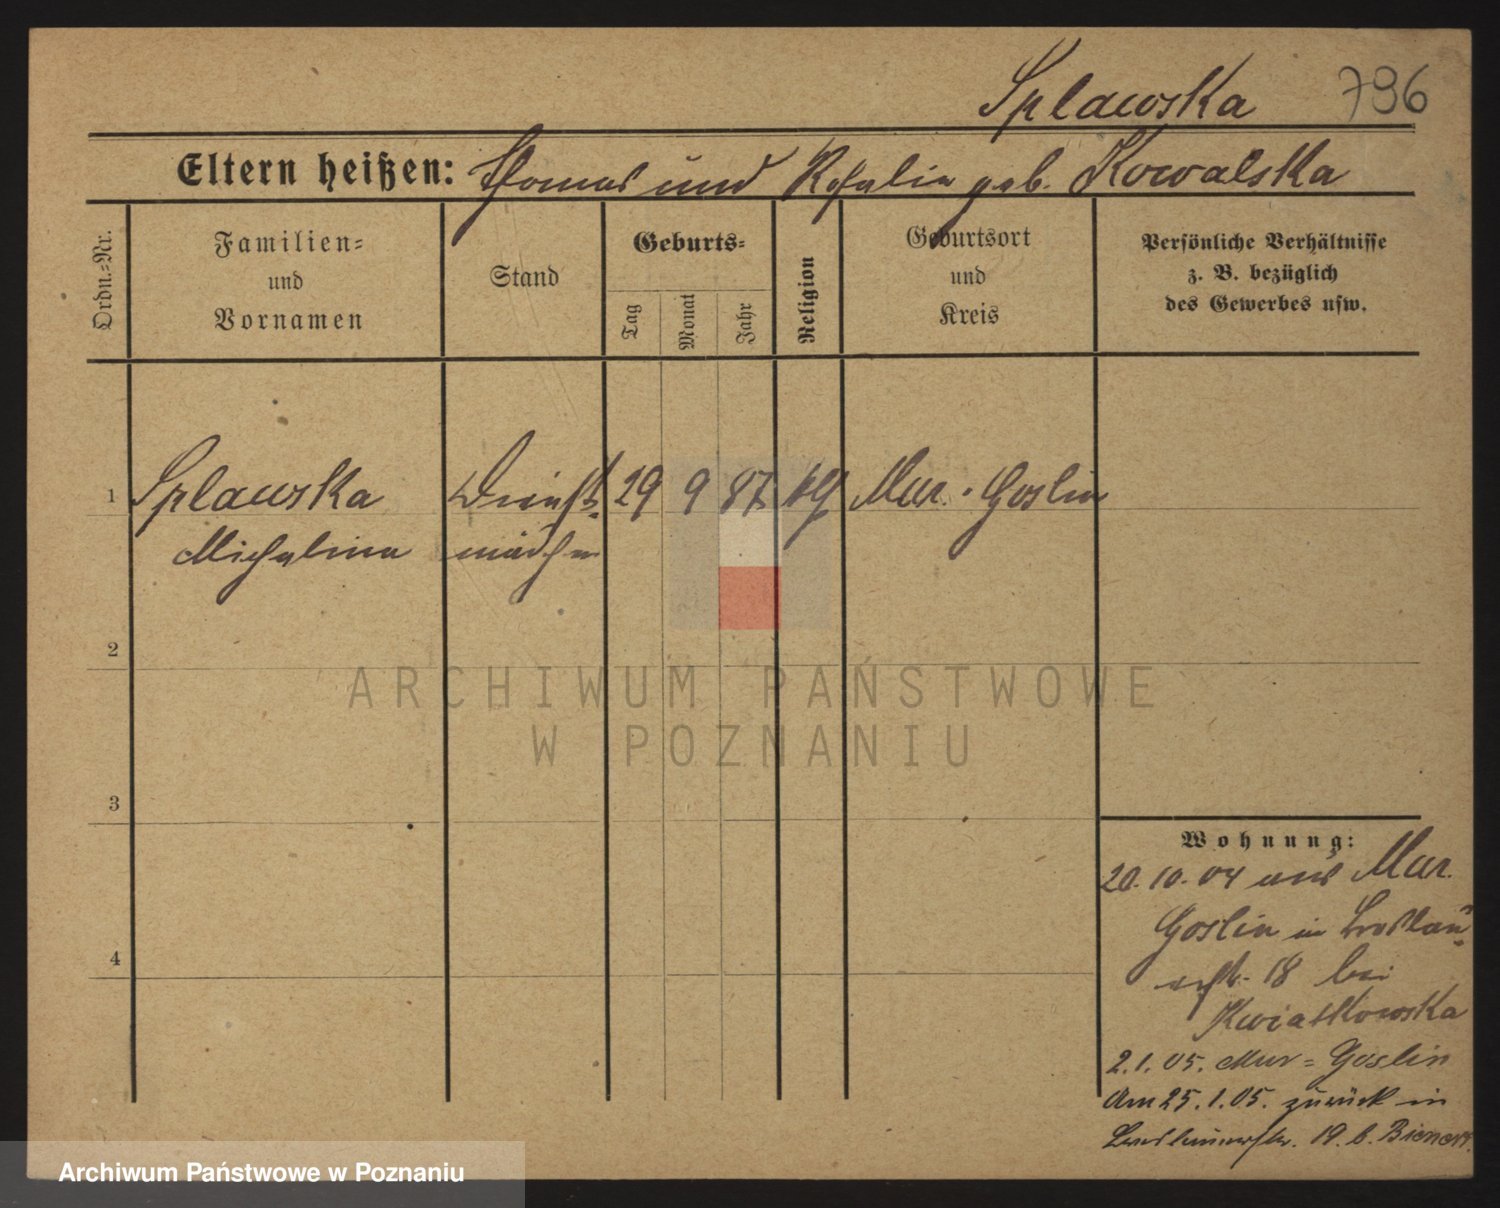 Splawska 796
Eltern heißen: Thomas und Rosalia geb. Kowalska
Ordn.=Nr.
Familien=
und
Vornamen
Stand
Geburts=
Tag
Monat
Jahr
Religion
Geburtsort
und
Kreis
Persönliche Verhältnisse
z. B. bezüglich
des Gewerbes usw.
1 Splawska Dienst= 29 9 87 kth Mur. Goslin
Michalina mädchen
2
3
4
Wohnung:
20.10.04 aus Mur.
Goslin in Breslau=
erstr. 18 bei
Kwiatkowska
2.1.05. Mur=Goslin
Am 25.1.05. zurück in
Breslauerstr. 19. b. Bienert.
ARCHIWUM PAŃSTWOWE
W POZNANIU
Archiwum Państwowe w Poznaniu